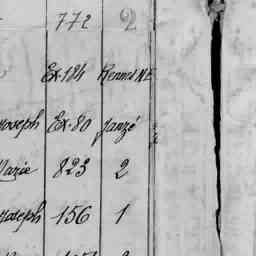 772 2
Ex·184 Rennes N.E
Joseph Ex·80 Janzé
Marie 823 2
Joseph 156 1